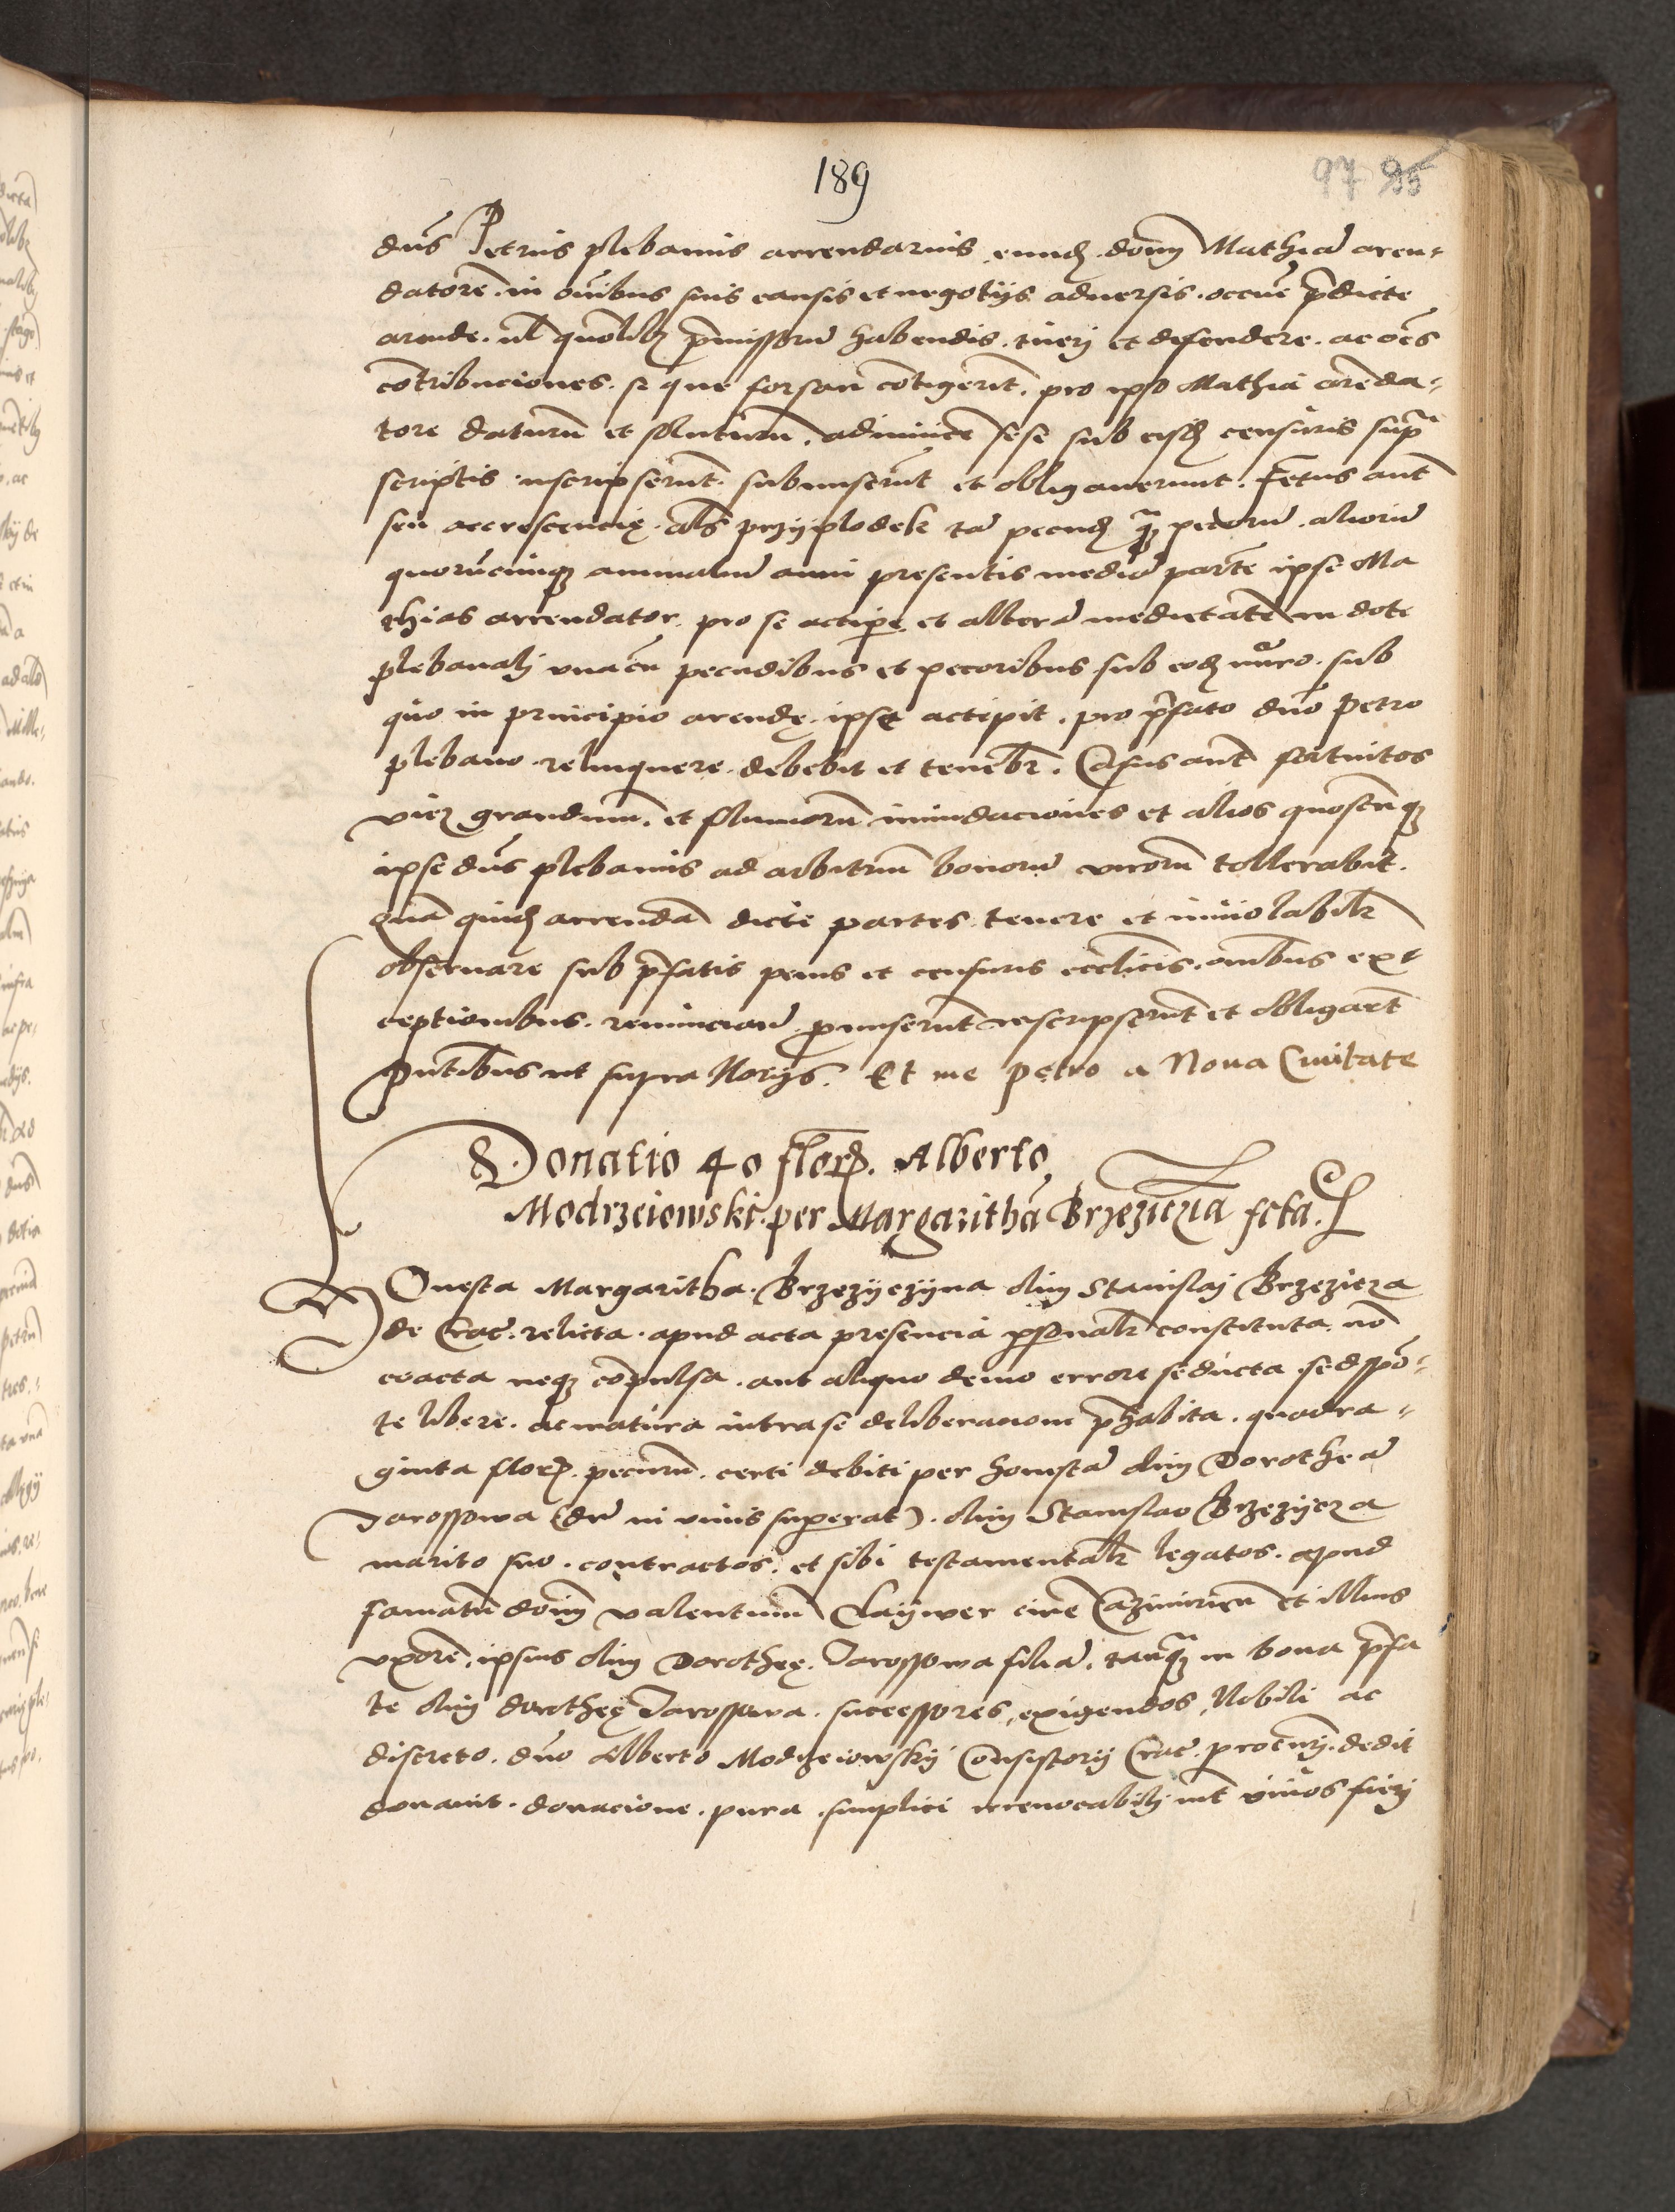 189
97 95
dn̄s Petrus plebanus arrendarius eund̄ do͞m Mathiā aren-
datorē in o͞ibus suis causis et negotijs aduersis occ͞ne p̄dicte
arende vl quol̄ibz p̄missorū habendis tueri et defendere ac o͞es
cōtribuciones si que forsan cōtigerīt pro ipso Mathia arēda-
tore daturū et soluturū adinuicē sese sub eisd̄ censuris supra
scriptis inscripserūt submiserūt et obligauerunt. Fetus aut̄
seu accrescencię al̄s przijplodek tā pecud̄ q̄ pecorū aliorū
quorūcunqz animaliū anni presentis mediā partē ipse Ma
thias arrendator pro se accip̄e et alterā medietatē in dote
plebanali vnacū pecudibus et pecoribus sub eod̄ nūero sub
quo in principio arendę ipse accepit pro p̄fato dn̄o Petro
plebano relinquere debebit et tenebr̄. Casus aut̄ fortuitos
vicz grandinū et fluuiorū inundaciones et alios quoscūqz
ipse dn̄s plebanus ad arbitriū bonorū virorū tollerabit.
quā quid̄ arrendā dicte partes tenere et inuiolabilr̄
obseruare sub p̄fatis penis et censuris eccl̄icis omībus ex
ceptionibus renunciand̄ p̄miserūt inscripserūt et obligarūt
Pn̄tibus vt supra Norijs. Et me Petro a Noua Ciuitate
Donatio 40 flor̄. Alberto
Modrzeiowski per Margarithā Brzeziczna fcta.
HOnesta Margaritha Brzezijczijna olim Stanislaj Brzezicza
de Crac̄ relicta apud acta presencia p̄sonalr̄ constituta nō
coacta neqz cōpulsa aut aliquo deuio errore seducta sed spō-
te libere ac matura intra se deliberacione p̄habita quadra-
ginta flor̄ pecuniar̄ certi debiti per honestā olim Dorotheā
Jarossowa (dū in viuis superat) olim Stanislao Brzezijcza
marito suo contractos et sibi testamentalr̄ legatos apud
famatū do͞m Valentinū Laijwer ciuē Cazimirien̄ et illius
vxorē ipsius olim Dorotheę Jarossowa filiā tanq̄ in bona p̄fa
te olim Dorotheę Jarossowa successores exigendos Nobili ac
discreto dn̄o Alberto Modrzeiowskij Consistorij Crac̄ procurj dedit
donauit donacione pura simplici irreuocabilj int̄ viuos fieri